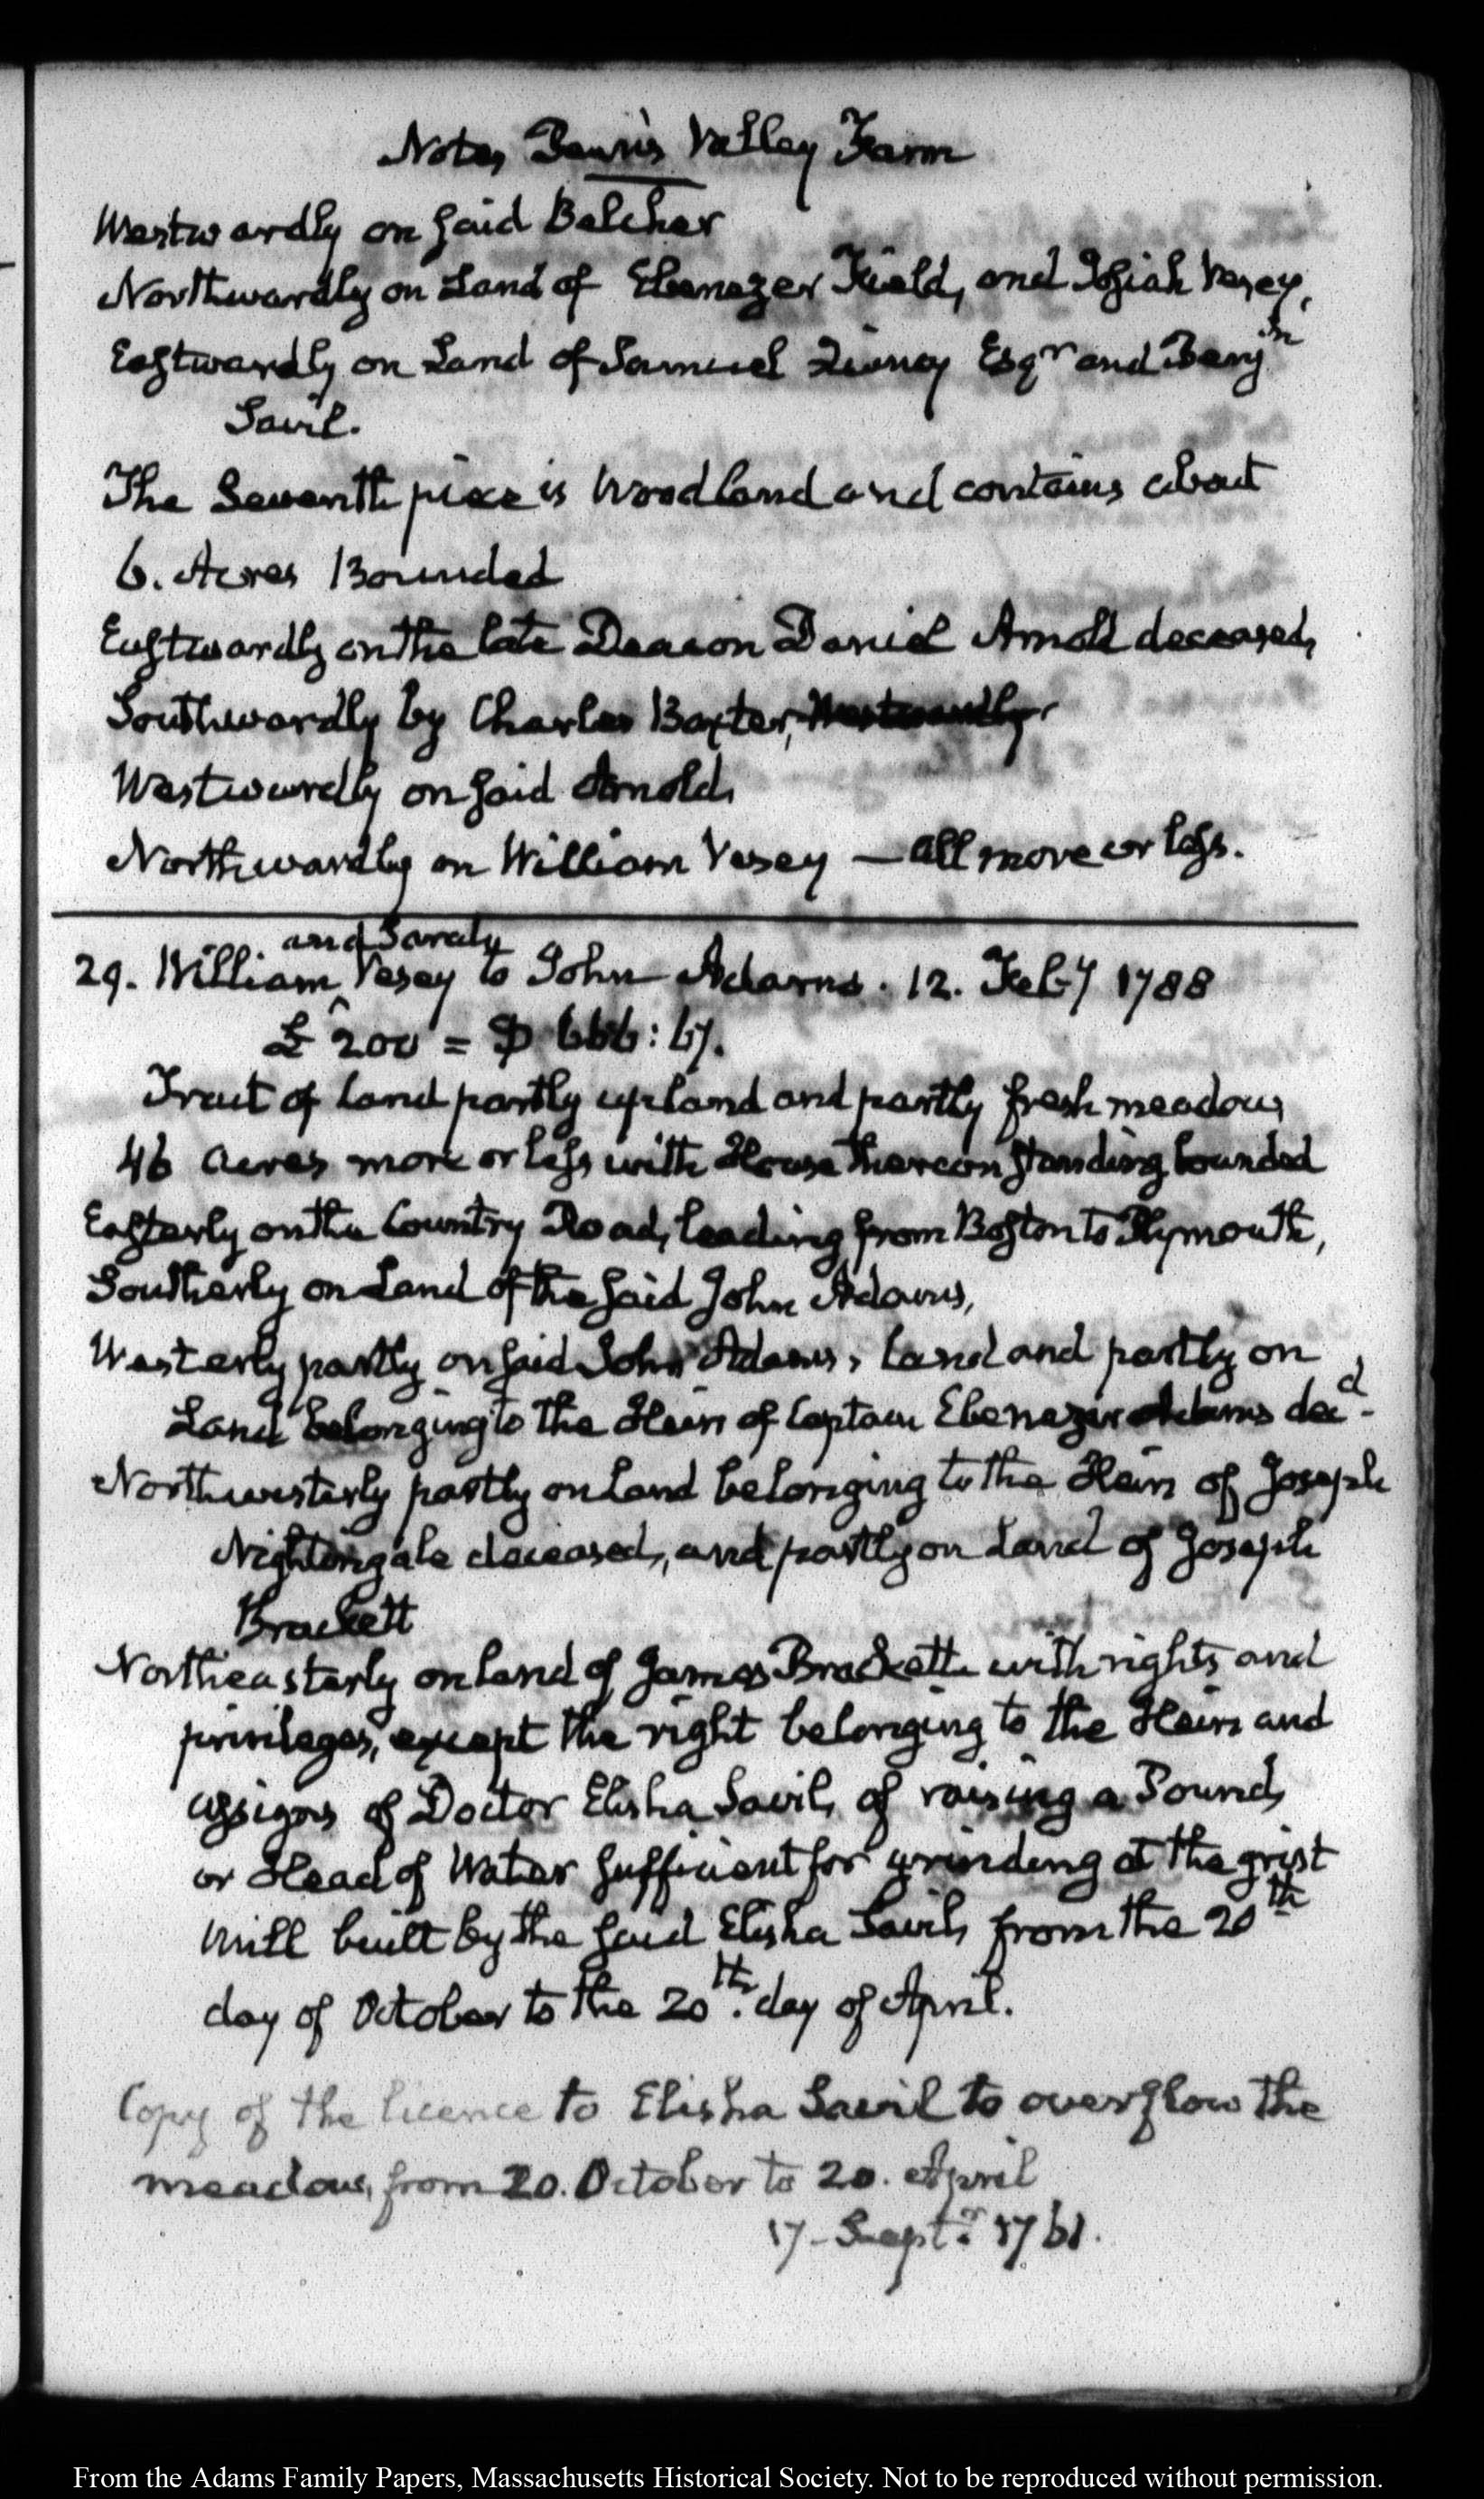 Notes Penn's Valley Farm
Westwardly on said Belcher
Northwardly on Land of Ebenezer Field, and Josiah Vesey,
Eastwardly on Land of Samuel Quincy Esqr and Benjn
Savil.
The Seventh piece is Woodland and contains about
6. Acres Bounded
Eastwardly on the late Deacon Daniel Arnold deceased,
Southwardly by Charles Baxter, Westwardly
Westwardly on said Arnold,
Northwardly on William Vesey — all more or less.
and Sarah
29. William ^ Vesey to John Adams. 12. Feby 1788
£ 200 = $ 666:67.
Tract of land partly upland and partly fresh meadow,
46 acres more or less with House thereon standing bounded
Easterly on the Country Road, leading from Boston to Plymouth,
Southerly on Land of the said John Adams,
Westerly partly on said John Adams's land and partly on
Land belonging to the Heirs of Captain Ebenezer Adams decd.
Northwesterly partly on land belonging to the Heirs of Joseph
Nightingale deceased, and partly on Land of Joseph
Brackett
Northeasterly on land of James Brackett with rights and
privileges, except the right belonging to the Heirs and
assigns of Doctor Elisha Savil, of raising a Pound,
or Head of Water sufficient for grinding at the grist
mill built by the said Elisha Savil, from the 20th
day of October to the 20th. day of April.
Copy of the licence to Elisha Savil to overflow the
meadow, from 20. October to 20. April
17 - Septr. 1761.
From the Adams Family Papers, Massachusetts Historical Society. Not to be reproduced without permission.